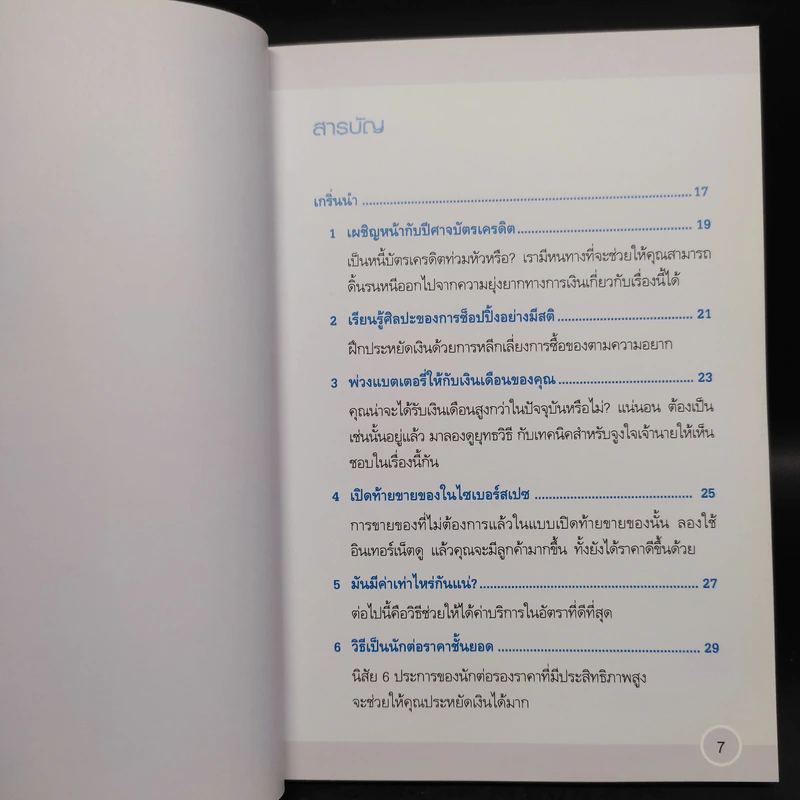 สารบัญ
เกริ่นนำ ........ 17
1 เผชิญหน้ากับปีศาจบัตรเครดิต ........ 19
เป็นหนี้บัตรเครดิตท่วมหัวหรือ? เรามีหนทางที่จะช่วยให้คุณสามารถ
ดิ้นรนหนีออกไปจากความยุ่งยากทางการเงินเกี่ยวกับเรื่องนี้ได้
2 เรียนรู้ศิลปะของการช็อปปิ้งอย่างมีสติ ........ 21
ฝึกประหยัดเงินด้วยการหลีกเลี่ยงการซื้อของตามความอยาก
3 พ่วงแบตเตอรี่ให้กับเงินเดือนของคุณ ........ 23
คุณน่าจะได้รับเงินเดือนสูงกว่าในปัจจุบันหรือไม่? แน่นอน ต้องเป็น
เช่นนั้นอยู่แล้ว มาลองดูยุทธวิธี กับเทคนิคสำหรับจูงใจเจ้านายให้เห็น
ชอบในเรื่องนี้กัน
4 เปิดท้ายขายของในไซเบอร์สเปซ ........ 25
การขายของที่ไม่ต้องการแล้วในแบบเปิดท้ายขายของนั้น ลองใช้
อินเทอร์เน็ตดู แล้วคุณจะมีลูกค้ามากขึ้น ทั้งยังได้ราคาดีขึ้นด้วย
5 มันมีค่าเท่าไหร่กันแน่? ........ 27
ต่อไปนี้คือวิธีช่วยให้ได้ค่าบริการในอัตราที่ดีที่สุด
6 วิธีเป็นนักต่อราคาชั้นยอด ........ 29
นิสัย 6 ประการของนักต่อรองราคาที่มีประสิทธิภาพสูง
จะช่วยให้คุณประหยัดเงินได้มาก
7